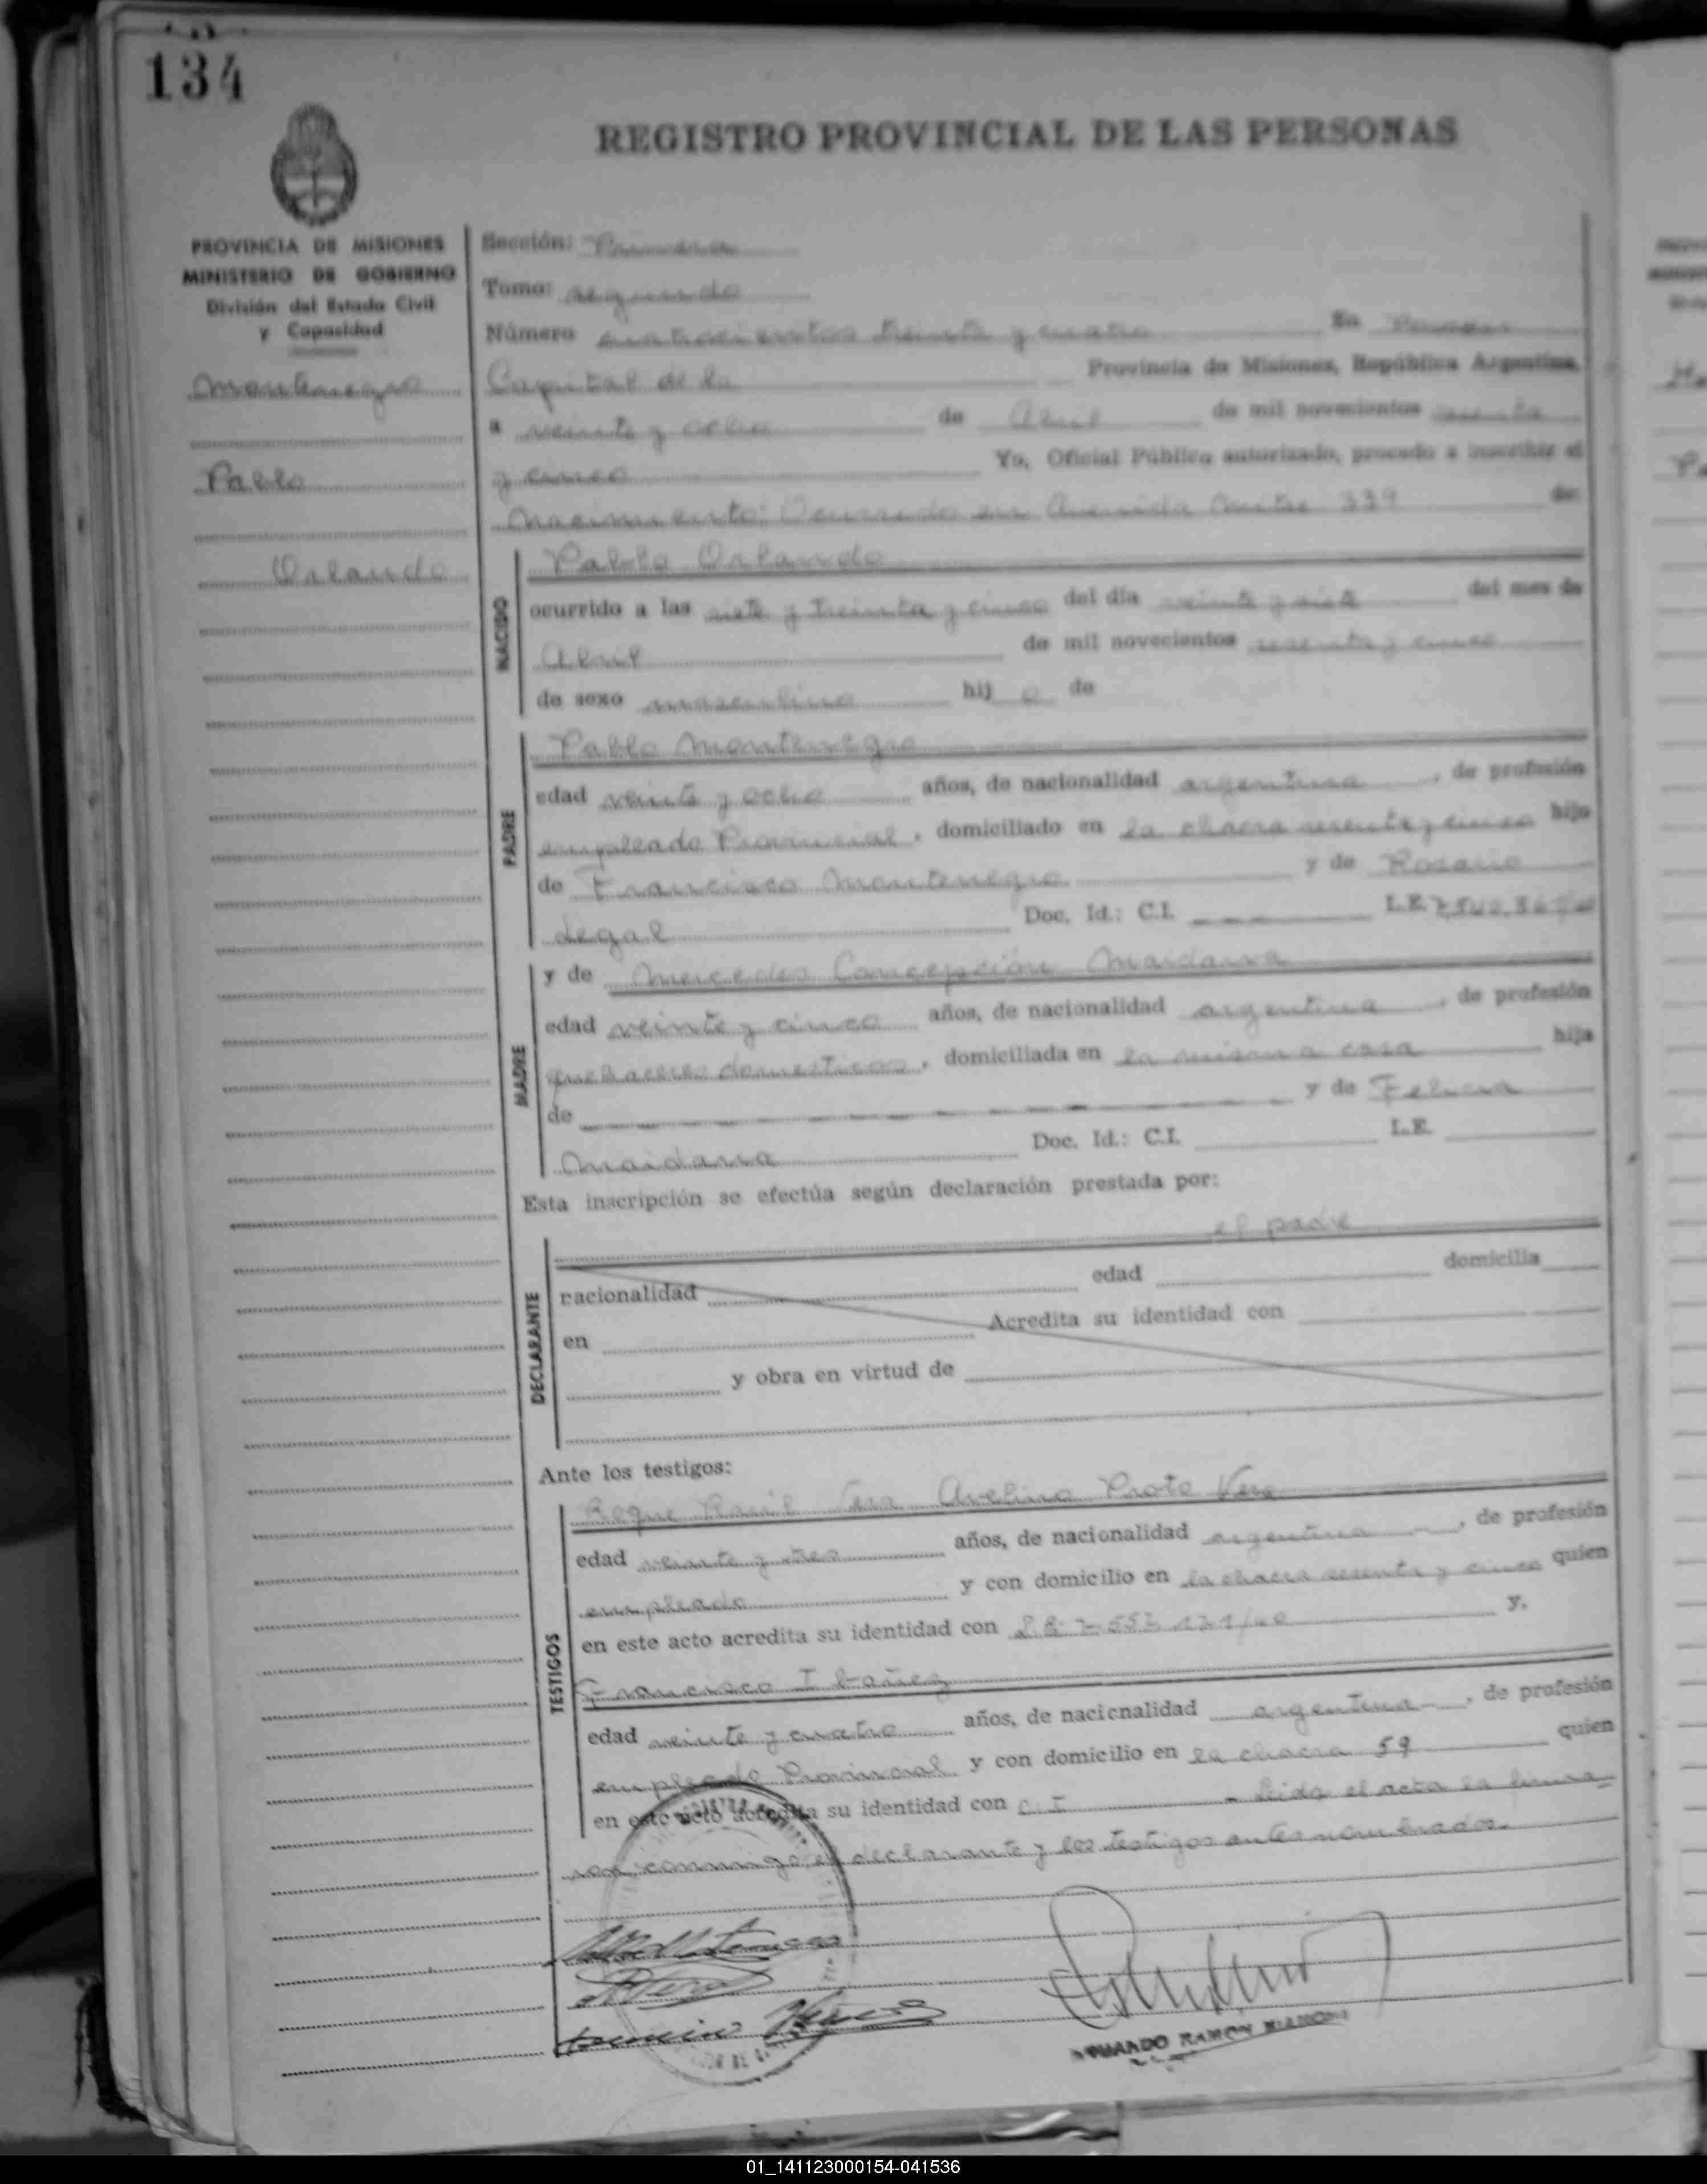 134
REGISTRO PROVINCIAL DE LAS PERSONAS
PROVINCIA DE MISIONES
MINISTERIO DE GOBIERNO
División del Estado Civil
y Capacidad
Montenegro
Pablo
Orlando
Sección: Primera
Tomo: segundo
Número cuatrocientos treinta y cuatro En Posadas
Capital de la Provincia de Misiones, República Argentina,
a veinte y ocho de Abril de mil novecientos sesenta
y cinco Yo, Oficial Público autorizado, procedo a inscribir el
Nacimiento: Ocurrido en Avenida Mitre 339 de:
NACIDO
Pablo Orlando
ocurrido a las siete y treinta y cinco del día veinte y siete del mes de
Abril de mil novecientos sesenta y cinco
de sexo masculino hij o de
PADRE
Pablo Montenegro
edad veinte y ocho años, de nacionalidad argentina, de profesión
empleado Provincial, domiciliado en la chacra sesenta y cinco hijo
de Francisco Montenegro y de Rosario
Legal Doc. Id.: C.I. L.E.
MADRE
y de Mercedes Concepción Maidana
edad veinte y cinco años, de nacionalidad argentina, de profesión
quehaceres domesticos, domiciliada en la misma casa hija
de y de Felicia
Maidana Doc. Id.: C.I. L.E.
Esta inscripción se efectúa según declaración prestada por:
el padre
DECLARANTE
nacionalidad edad domicilia
en Acredita su identidad con
y obra en virtud de
Ante los testigos:
TESTIGOS
Avelino Proto Vera
edad años, de nacionalidad argentina, de profesión
empleado y con domicilio en la chacra sesenta y cinco quien
en este acto acredita su identidad con y,
Francisco Ibañez
edad veinte y cuatro años, de nacionalidad argentina, de profesión
empleado Provincial y con domicilio en la chacra 59 quien
en este acto acredita su identidad con C. I - Leida el acta la firma
ron conmigo el declarante y los testigos antes nombrados.
RAMON
01_141123000154-041536